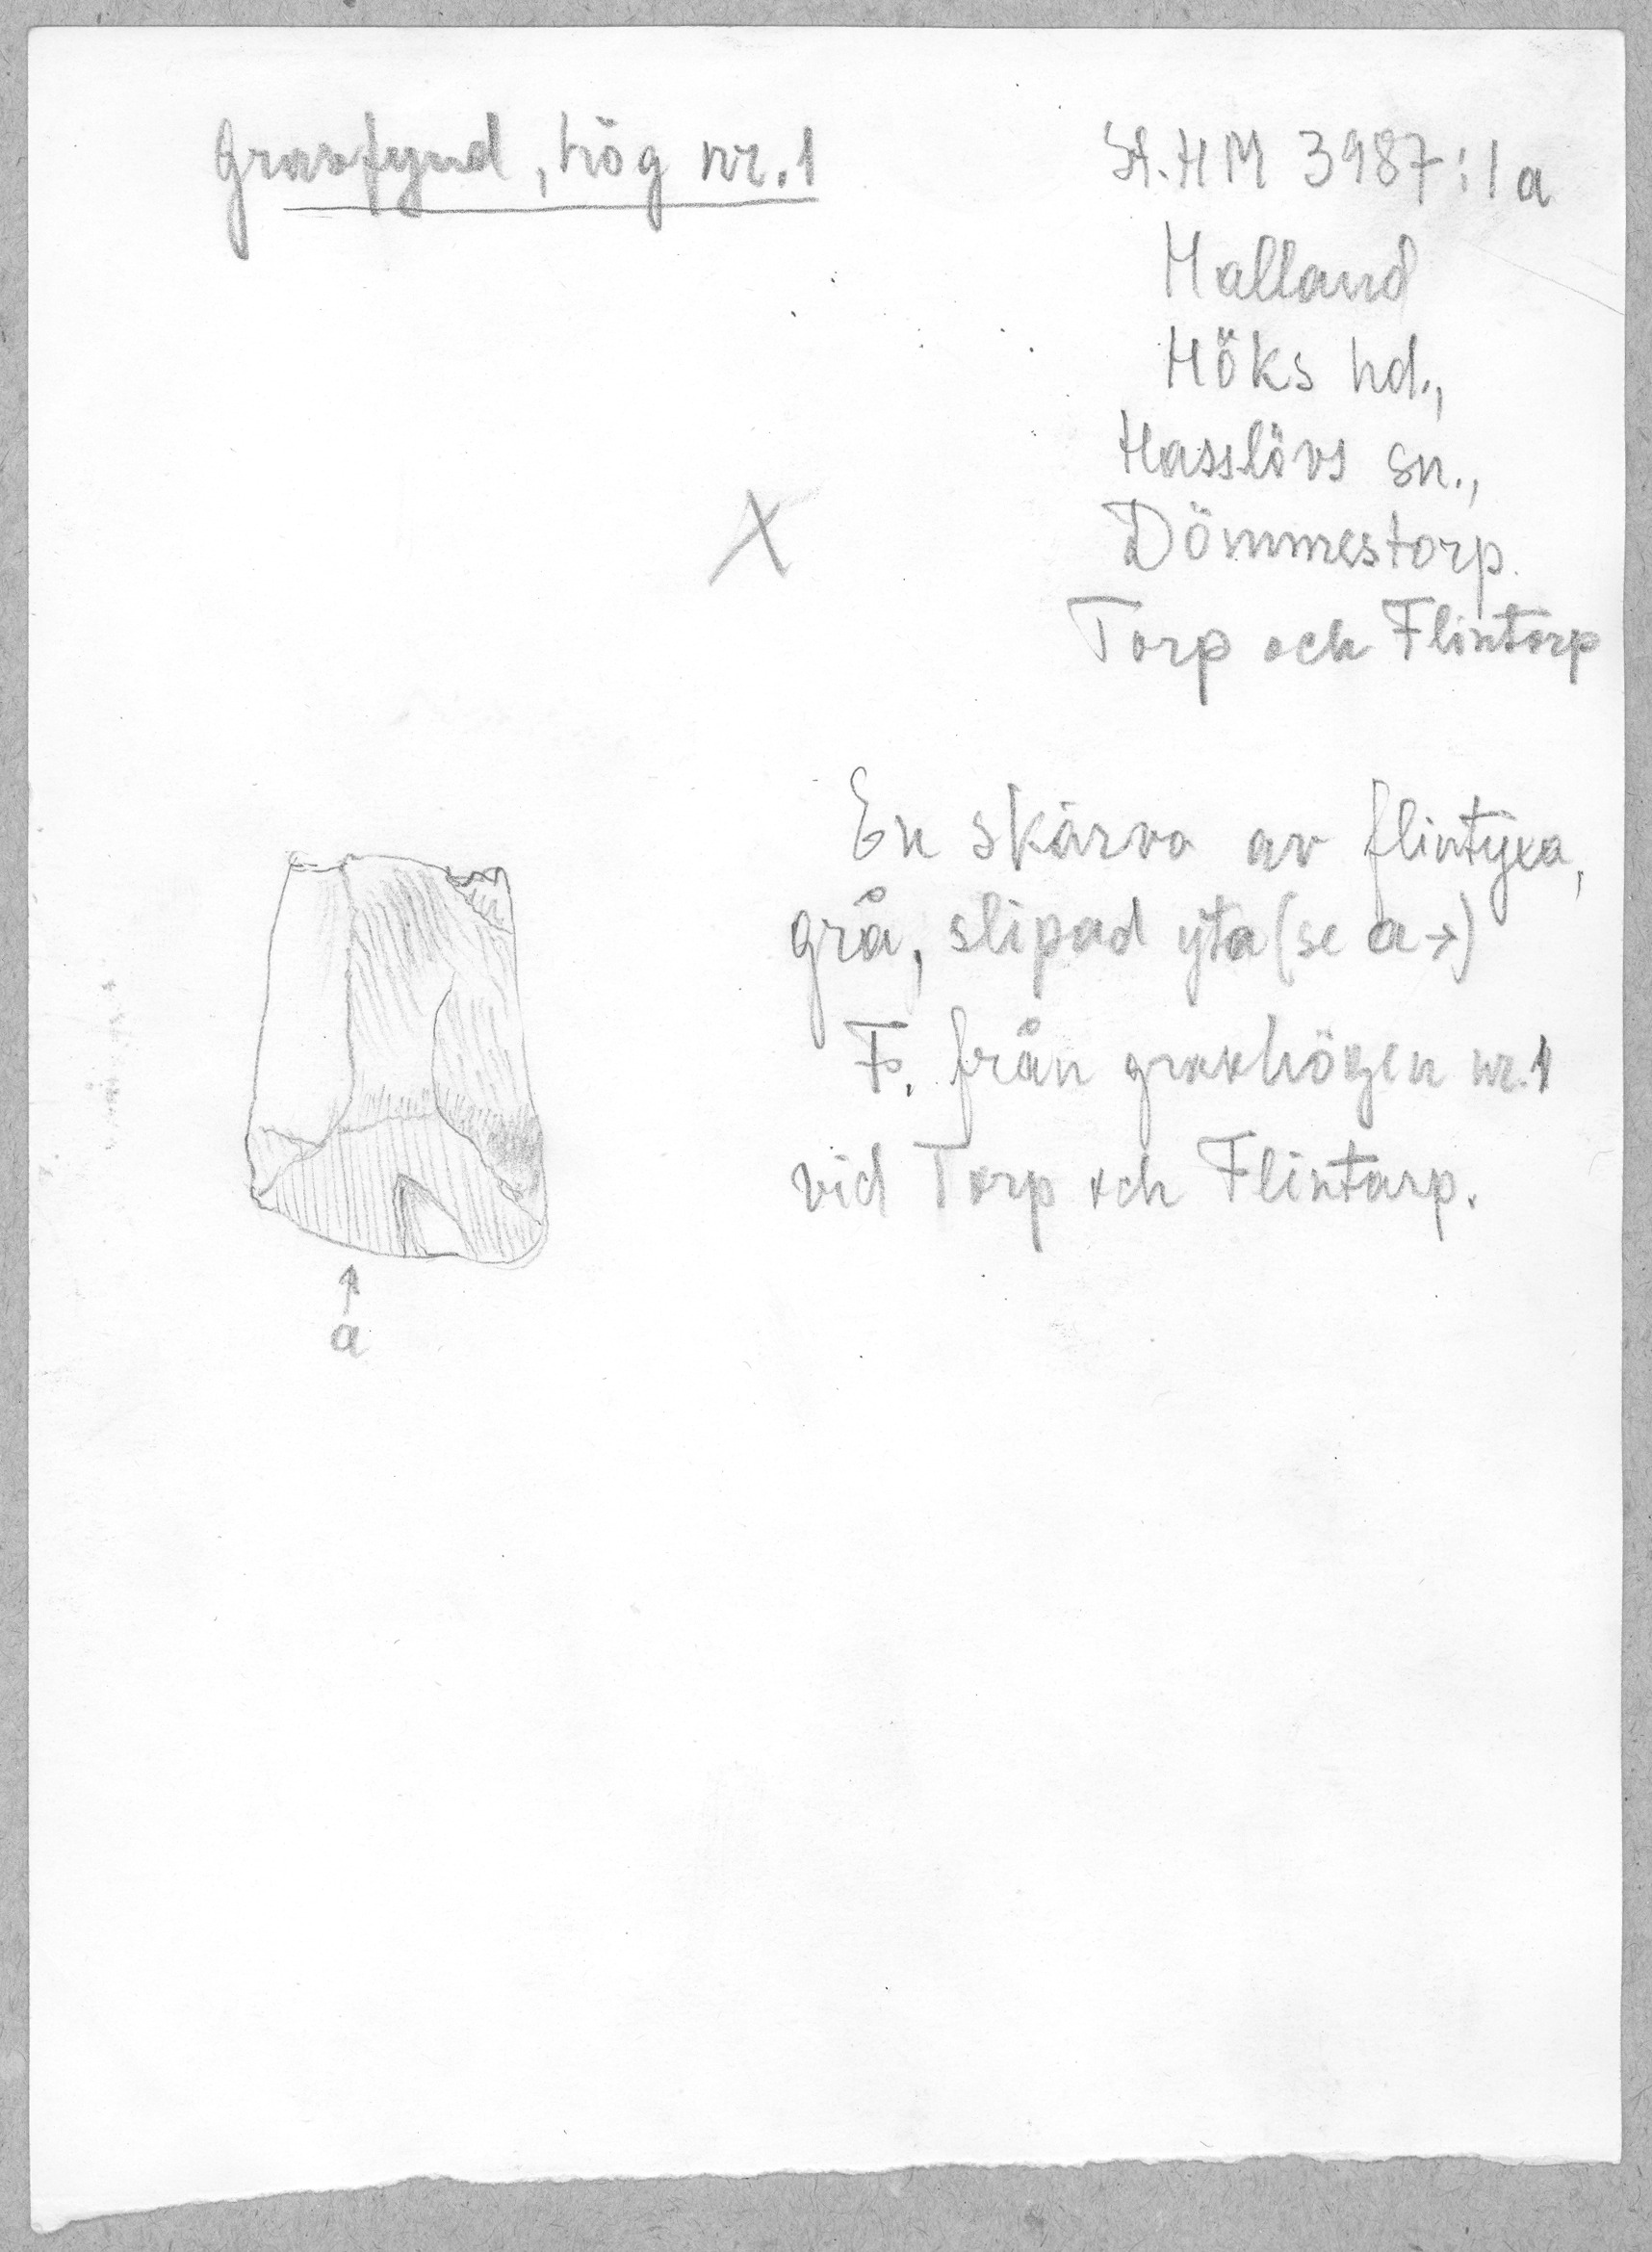 Gravfynd, hög nr. 1
St. HM 3987:1a
Halland
Höks hd.,
Hasslövs sn.,
Dömmestorp.
Torp och Flintorp
En skärva av flintyxa,
grå, slipad yta (se a→)
F. från gravhögen nr. 1
vid Torp och Flintarp.
a